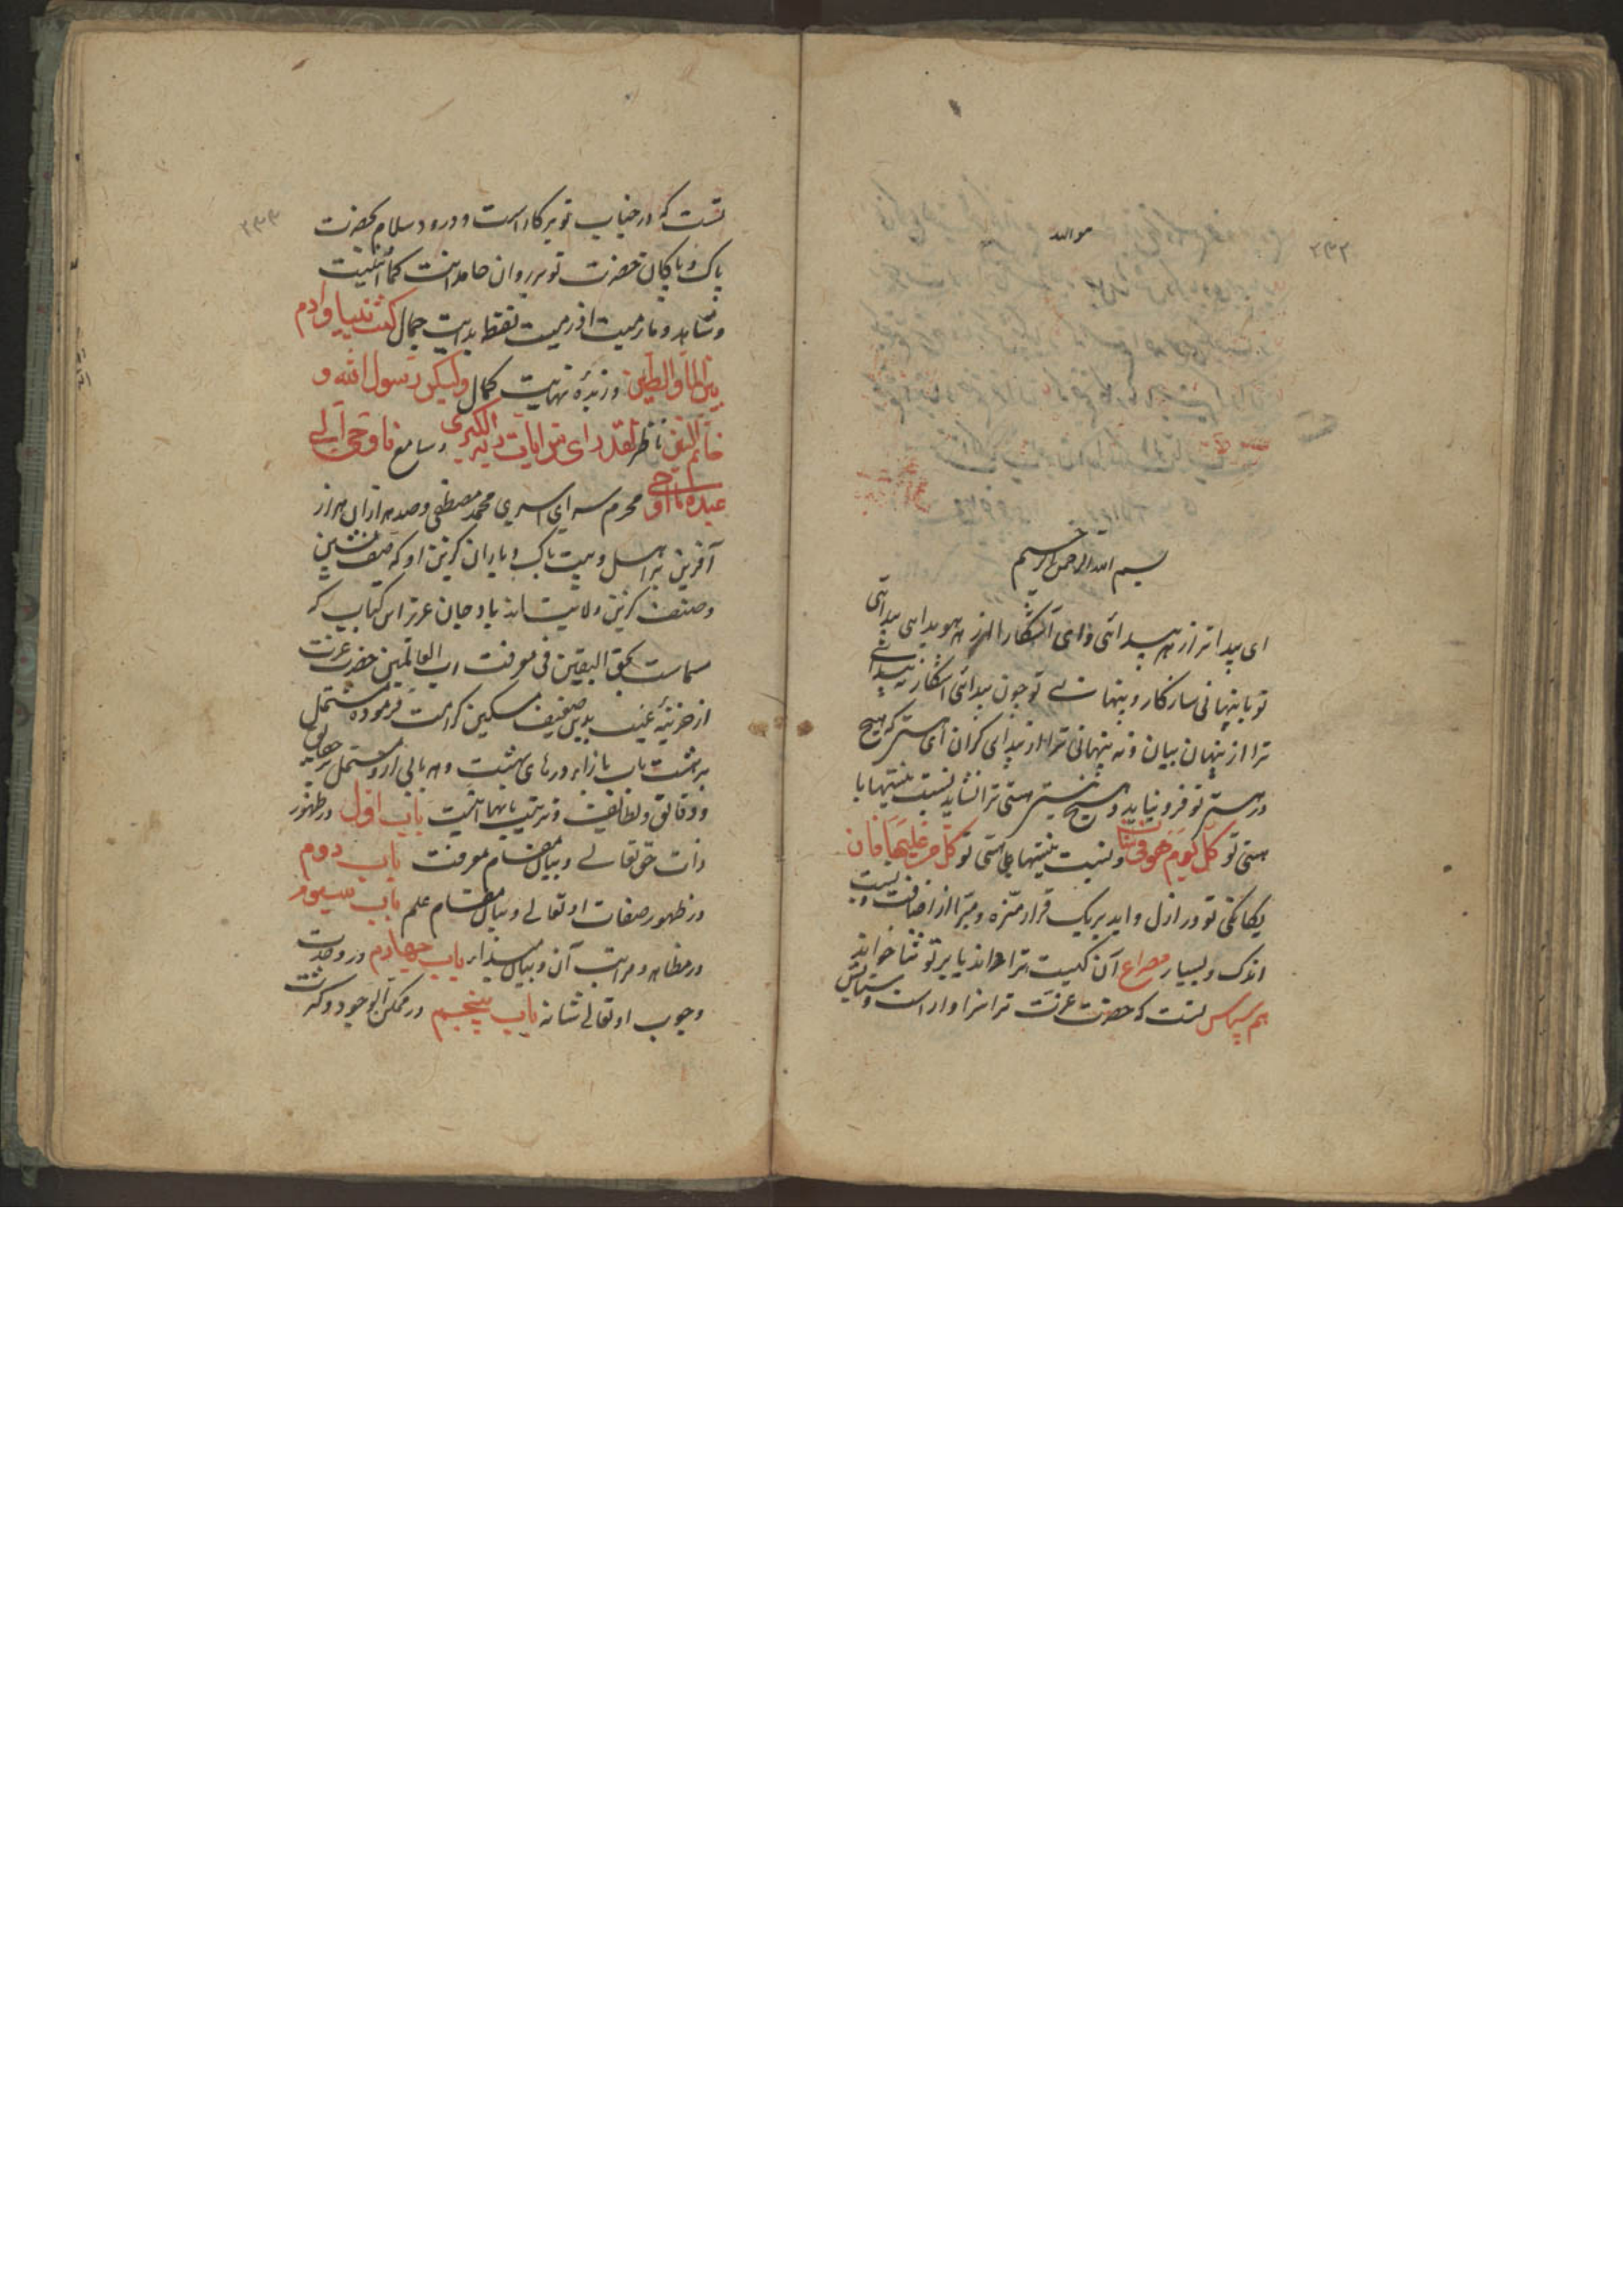 ۲۳۲
هو الله
بسم الله الرحمن الرحیم
ای پیداتر از هر پیدائی و ای آشکارا تر از هر هویدای پیدائی
تو با پنهانی سازگار و پنهانی تو چون پیدائی آشکار نه پیدائی
ترا از پنهان بیان و نه پنهانی ترا از پیدای کران ای که هیچ
در تو فرو نیاید و هیچ هستی ترا نشاید نسبت نیستیها با
هستی تو کل یوم هو فی شان و نسبت نیستیها با هستی تو کل من علیها فان
یگانگی تو در ازل و ابد بر یک قرار منزه و مبرا از اضافت و نسبت
اندک و بسیار مصراع آن کیست ترا داند یا بر تو ثنا خواند
هم سپاس تست که حضرت عزت ترا سزاوار است و ستایش
۲۳۳
تست که در جناب تو بر کار است و درود و سلام بحضرت
پاک و پاکان حضرت تو بر روان حامد انت کما اثنیت
و شاهد و ما رمیت اذ رمیت نقطه بدایت جمال کنت نبیا و آدم
بین الماء والطین و زبده نهایت کمال ولیکن رسول الله و
خاتم النبین ناظر لقد رای من ایات ربه الکبری و سامع فاوحی الی
عبده ما اوحی محرم سرای اسری محمد مصطفی و صد هزاران هزار
آفرین بر اهل و بیت پاک و یاران گزین او که صف نشین
و صنف گزین ولایت اند باد جان عزیز این کتاب که
مسماست بحق الیقین فی معرفت رب العالمین حضرت عزت
از خزینه غیب بدین ضعیف مسکین کرامت فرموده مشتمل
بر هشت باب بازاء درهای بهشت و هر بابی ازو مشتمل بر حقایق
و دقایق و لطایف و ترتیب بابها اینست باب اول در ظهور
ذات حق تعالی و بیان مقام معرفت باب دوم
در ظهور صفات او تعالی و بیان مقام علم باب سیوم
در مظاهر و مراتب آن و بیان مبداء باب چهارم در وحدت
وجوب او تعالی شانه باب پنجم در ممکن الوجود و کثرت